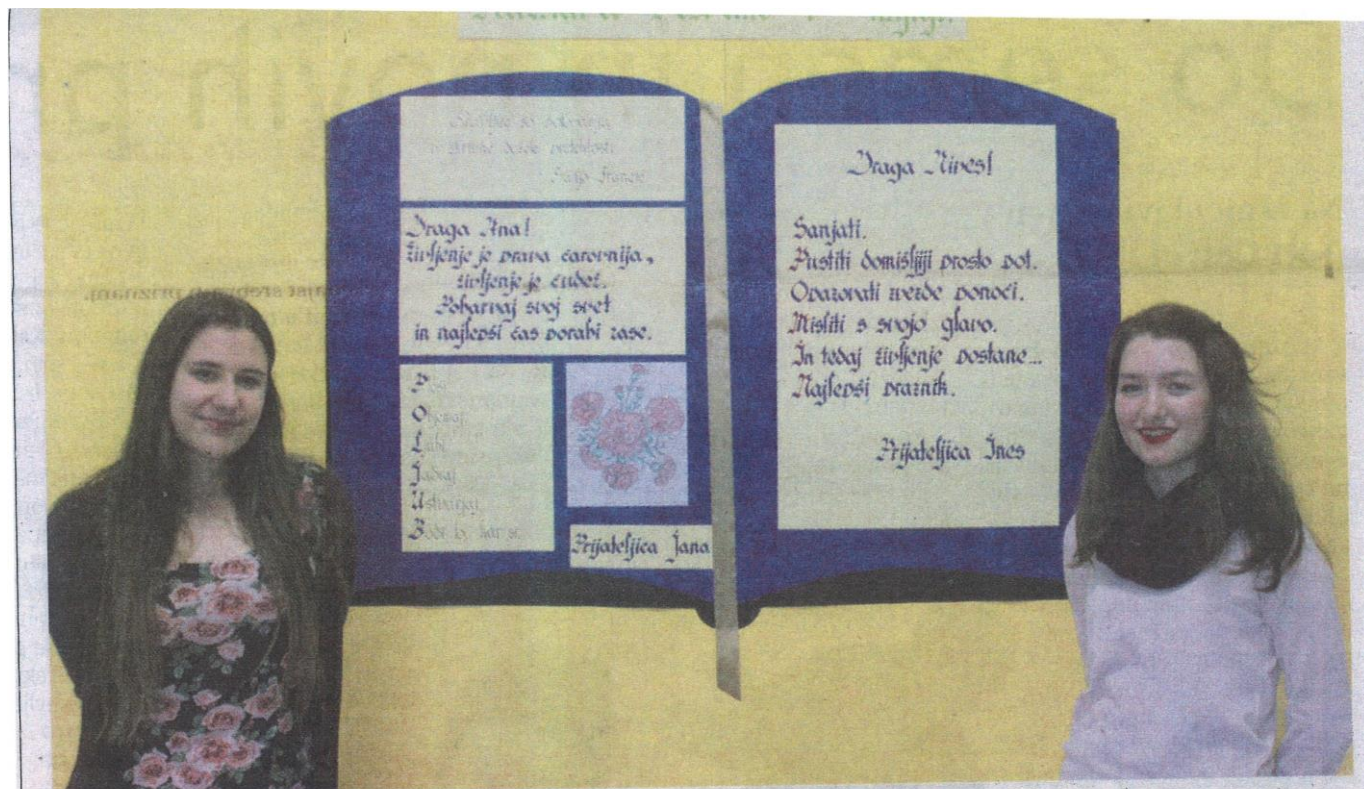 Draga Ana!
Življenje je prava čarovnija,
življenje je čudež.
Pobarvaj svoj svet
in najlepši čas porabi zase.
Objemaj
Ljubi
Jadraj
Ustvarjaj
Bodi to, kar si
Prijateljica Jana
Draga Nives!
Sanjati.
Pustiti domišljiji prosto pot.
Opazovati zvezde ponoči.
Misliti s svojo glavo.
In tedaj življenje postane...
Najlepši praznik.
Prijateljica Ines